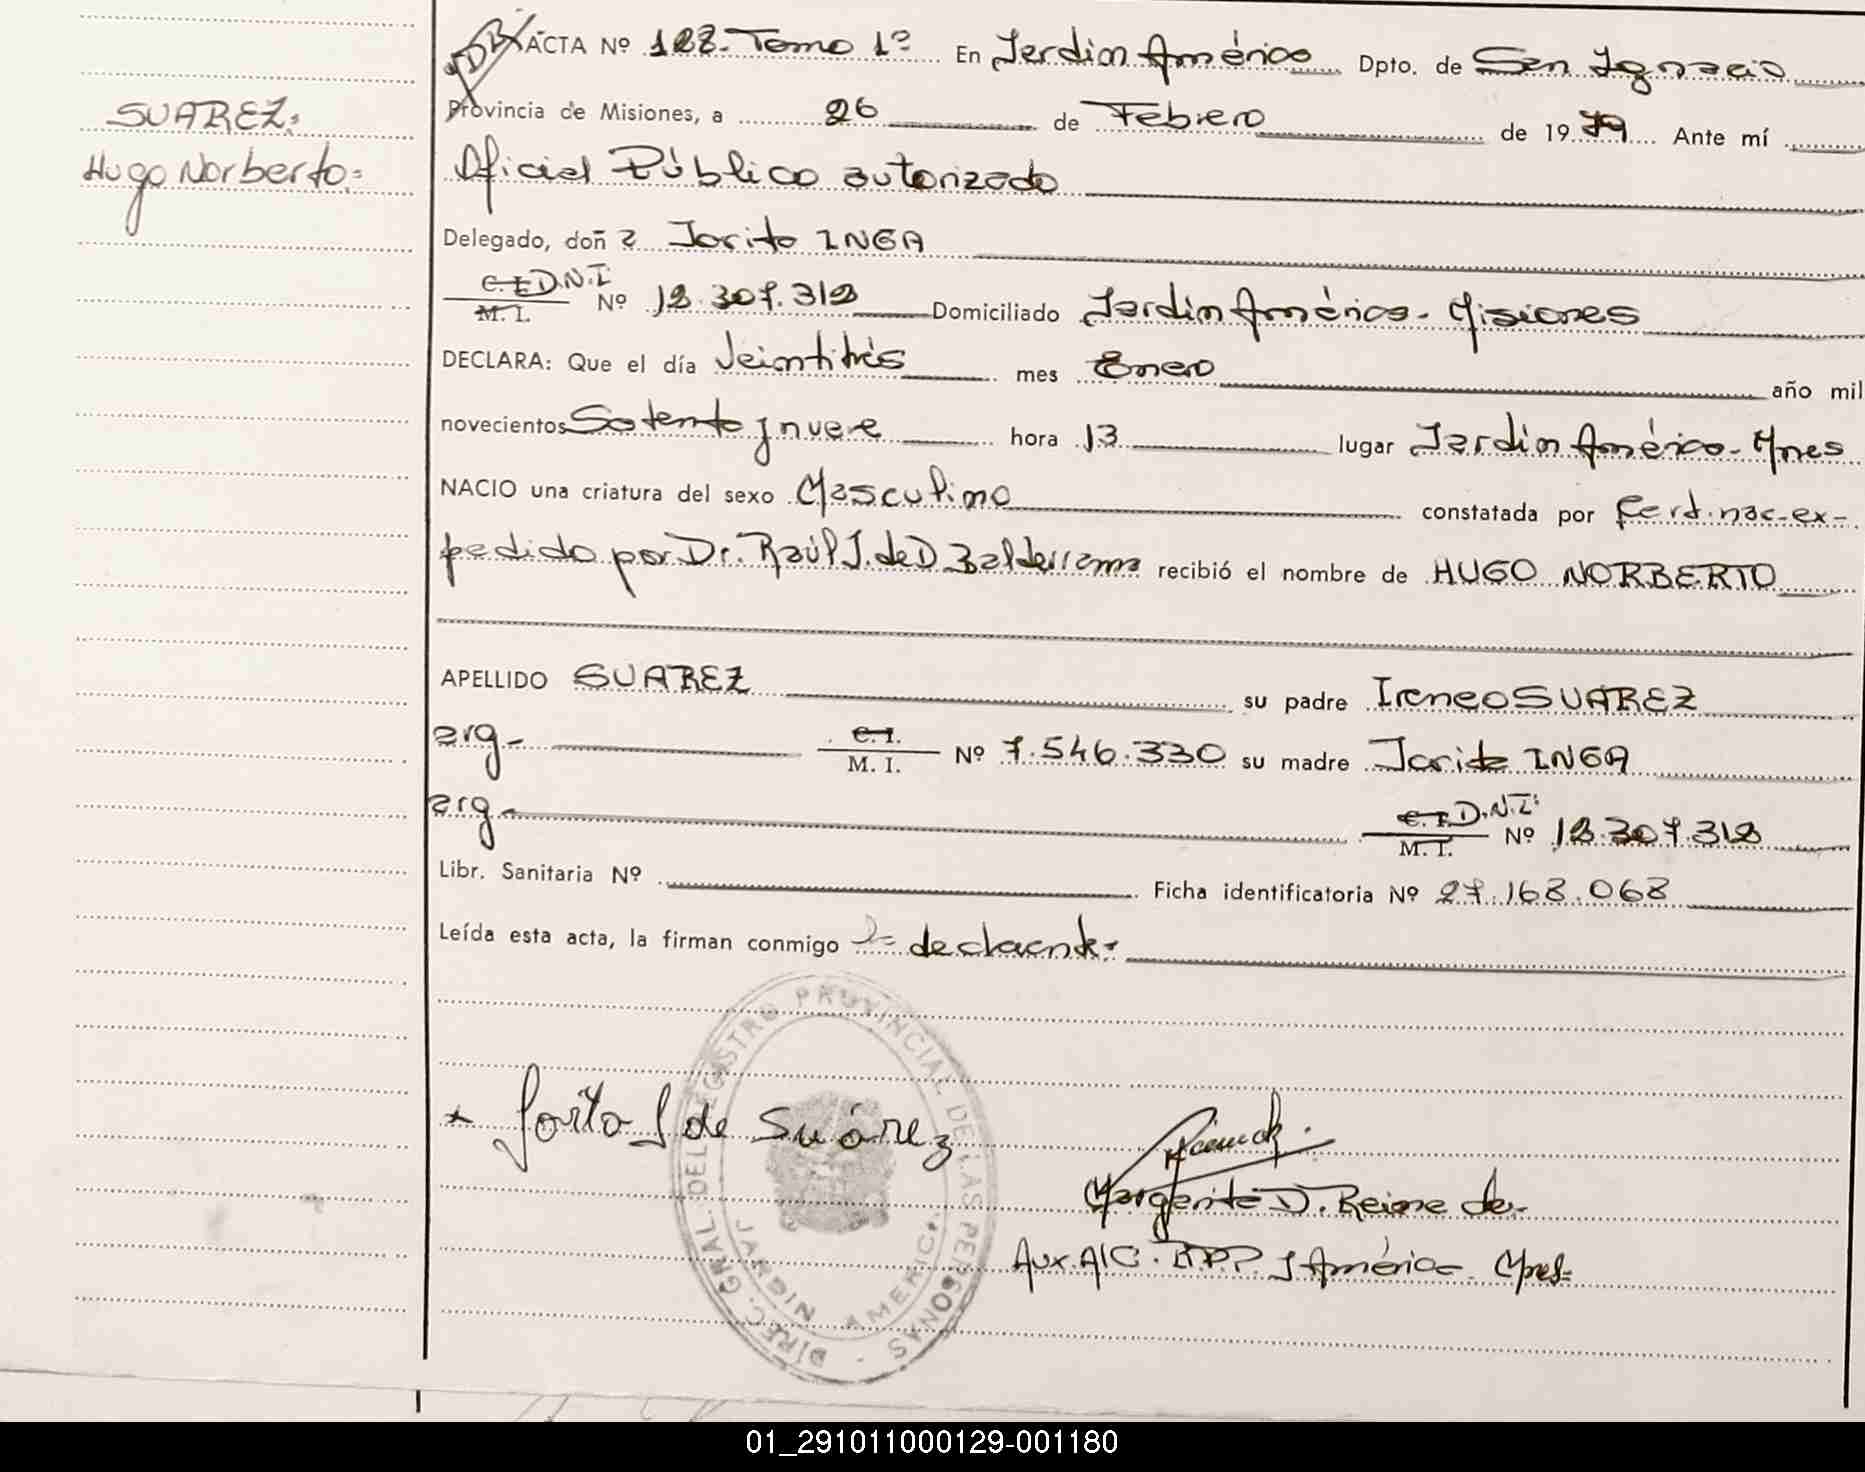 ACTA Nº 128. Tomo 1º En Jardin América Dpto. de San Ignacio
SUAREZ:
Provincia de Misiones, a 26 de Febrero de 1979 Ante mí
Hugo Norberto:
Oficial Público autorizado
Delegado, doña Jorita INGA
C.I. D.N.I
M. I. Nº 12.307.312 Domiciliado Jardin América. Misiones
DECLARA: Que el día Veintitrés mes Enero año mil
novecientos Setenta y nueve hora 13 lugar Jardin América. Mnes
NACIO una criatura del sexo Masculino constatada por Cert. nac. ex-
pedido por Dr. Raúl J. de D. Balderrama recibió el nombre de HUGO NORBERTO
APELLIDO SUAREZ su padre Ireneo SUAREZ
arg- C.I. M. I. Nº 7.546.330 su madre Jorita INGA
arg- C.I. D.N.I. M. I. Nº 12.307.312
Libr. Sanitaria Nº Ficha identificatoria Nº 27.168.068
Leída esta acta, la firman conmigo la declarante
DIREC. GRAL. DEL REGISTRO PROVINCIAL DE LAS PERSONAS
JARDIN AMERICA
Jorita I de Suárez
Margarita D. Reime de
Aux. A/C. R.P.P. J. América. Mnes
01_291011000129-001180